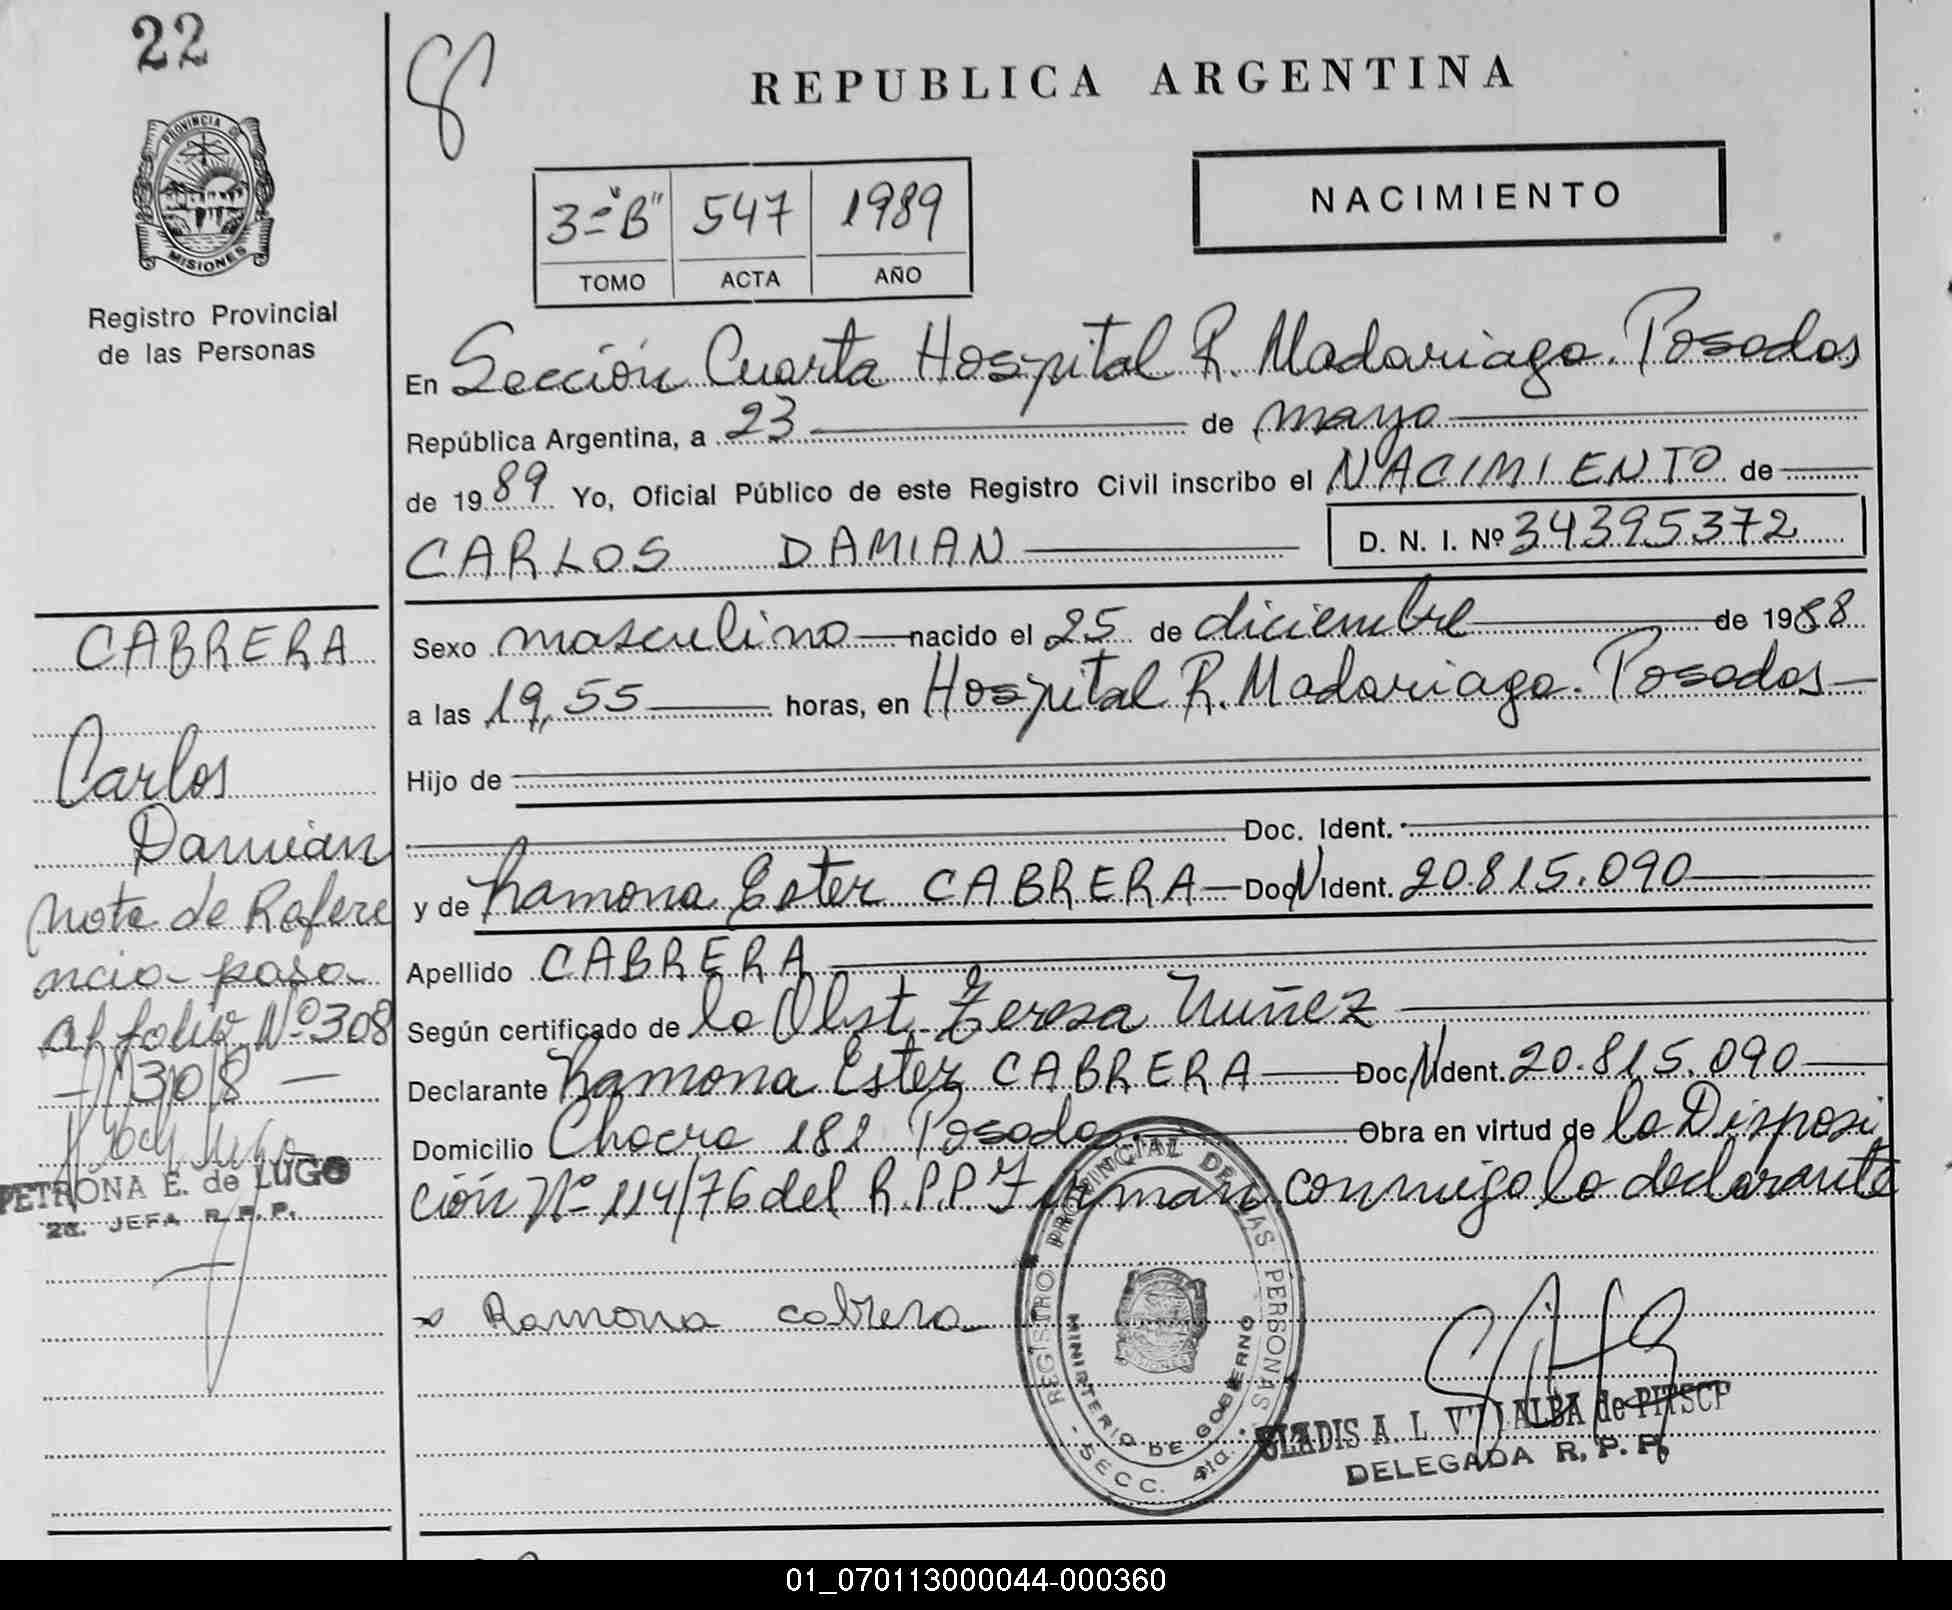 22
PROVINCIA DE
MISIONES
Registro Provincial
de las Personas
REPUBLICA ARGENTINA
NACIMIENTO
3-"B" 547 1989
TOMO ACTA AÑO
En Sección Cuarta Hospital R. Madariaga. Posadas
República Argentina, a 23 de mayo
de 1989 Yo, Oficial Público de este Registro Civil inscribo el NACIMIENTO de
CARLOS DAMIAN
D. N. I. Nº 34395372
Sexo masculino nacido el 25 de diciembre de 1988
a las 19,55 horas, en Hospital R. Madariaga. Posadas
Hijo de
Doc. Ident.
y de Ramona Ester CABRERA Doc N Ident. 20.815.090
Apellido CABRERA
Según certificado de la Obst. Teresa Nuñez
Declarante Ramona Ester CABRERA Doc N Ident. 20.815.090
Domicilio Chacra 181 Posadas. Obra en virtud de la Disposi
ción Nº 114/76 del R.P.P. Firman conmigo la declarante
Ramona cabrera
REGISTRO PROVINCIAL DE LAS PERSONAS
MINISTERIO DE GOBIERNO
- SECC. 4ta. -
GLADIS A. L. VILLALBA de
DELEGADA R. P. P.
CABRERA
Carlos
Damián
Nota de Refere
ncia pasa
al folio Nº 308
- 308 -
PETRONA E. de LUGO
2a. JEFA R. P. P.
01_070113000044-000360